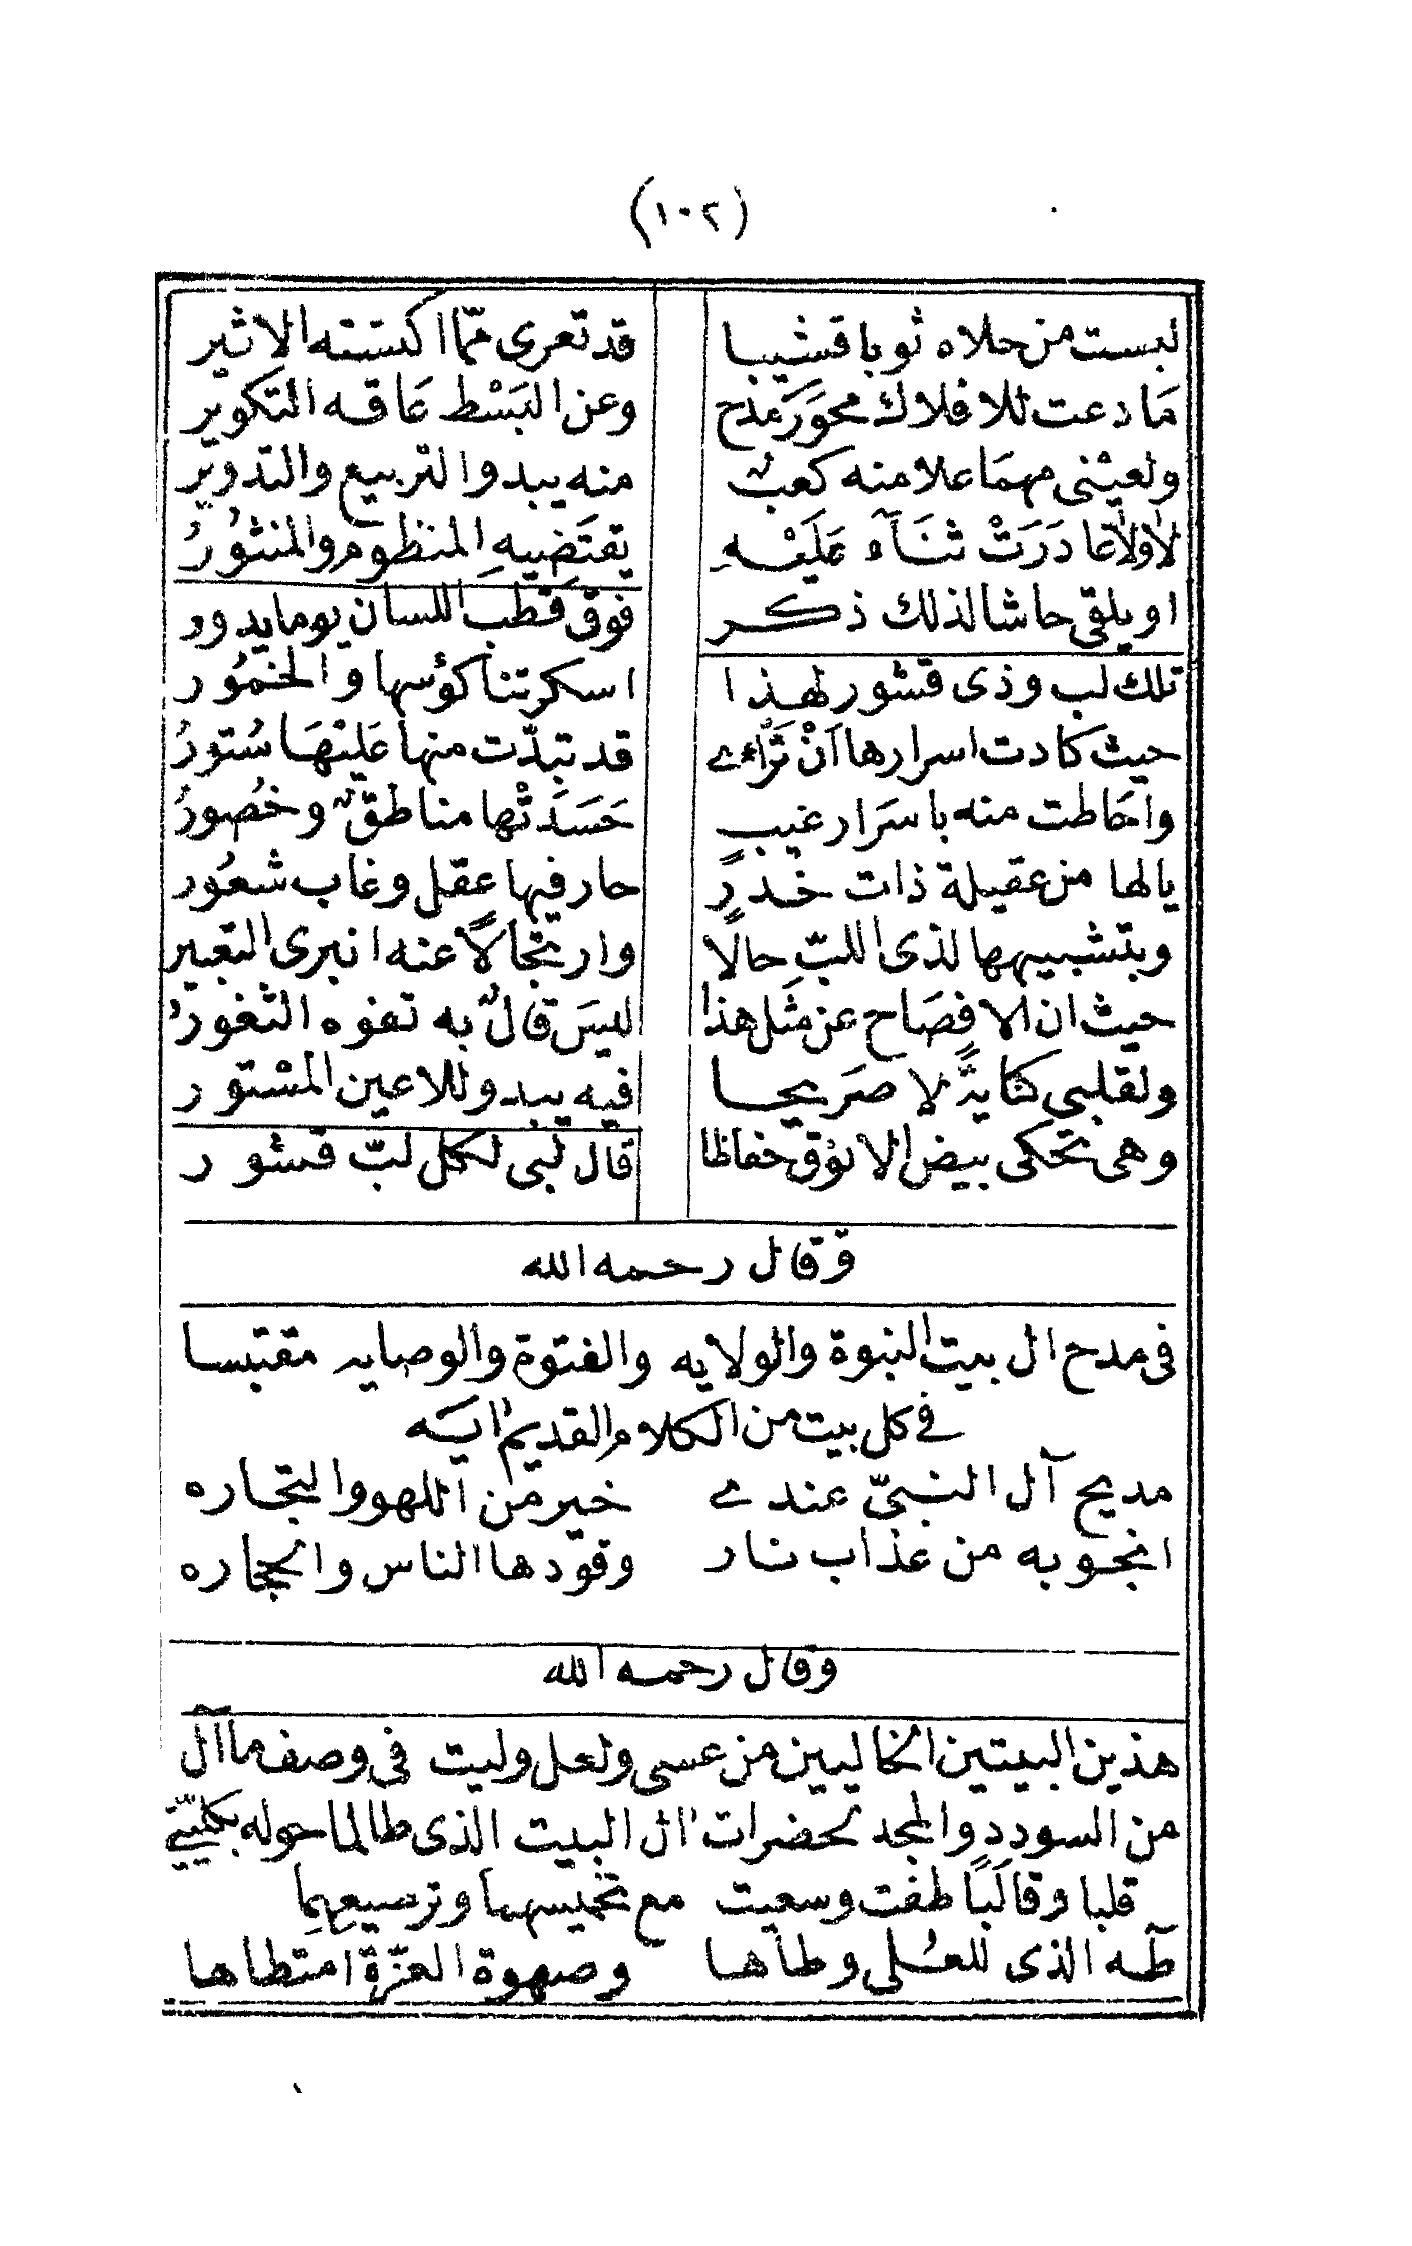 (١٠٢)
لبست من حلاه ثوبا قشيبا قد تعرى ممّا اكتسته الاثير
مَا دعت للافلاك محوَر مَدح وعن البَسْط عَاقه التكوير
ولعيْنى مهمَا علا منه كعبٌ منه يبدو التربيع والتدوير
لا ولا غادَرَتْ ثنَآء عَليْهِ يقتَضيهِ المنظوم والمنثورُ
او يلقى حاشا لذلك ذكر فوق قطب اللسان يوما يدور
تلك لب وذى قشور لهذا اسكرتنا كؤسها والخمُور
حيث كادت اسرارها اَنْ تَرَاءے قد تبدّت منها عَليْهَا سُتورُ
واحَاطت منه باسرَار غيبٍ حَسَدَتْها مناطقٌ وخُصورُ
يالها من عقيلة ذات خدرٍ حار فيها عقل وغاب شعُور
وبتشبيهها لذى اللبّ حالًا وارتجالًا عنه انبرى التعبير
حيث ان الافصَاح عن مثَل هذا ليسَ قالٌ به تفوه الثغورُ
ولقلبى كنايةً لا صَريحا فيه يبدو للاعين المسْتور
وهى تحكى بيض الانوْق حفاظا قال لبى لكل لبّ قشور
وقال رحمه الله
فى مدح ال بيت النبوة والولايه والفتوة والوصايه مقتبسا
فى كل بيت من الكلام القديم ايَه
مديح آل النبىّ عندے خير من اللهو والتجاره
انجو به من عذاب نار وقودها الناس والحجاره
وقال رحمه الله
هذين البيتين الخاليين من عسى ولعل وليت فى وصف ما آل
من السودد والمجد لحضرات ال البيت الذى طالما حوله بكليتي
قلبا وقالَبًا طفت وسعيت مع تخميسهما وترصيعهما
طٓه الذى للعُلى وطاها وصهوة العزّة امتطاها